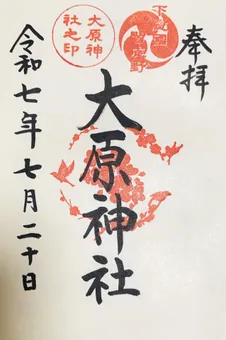 奉拝
下総国
大原神社之印
大原神社
令和七年七月二十日